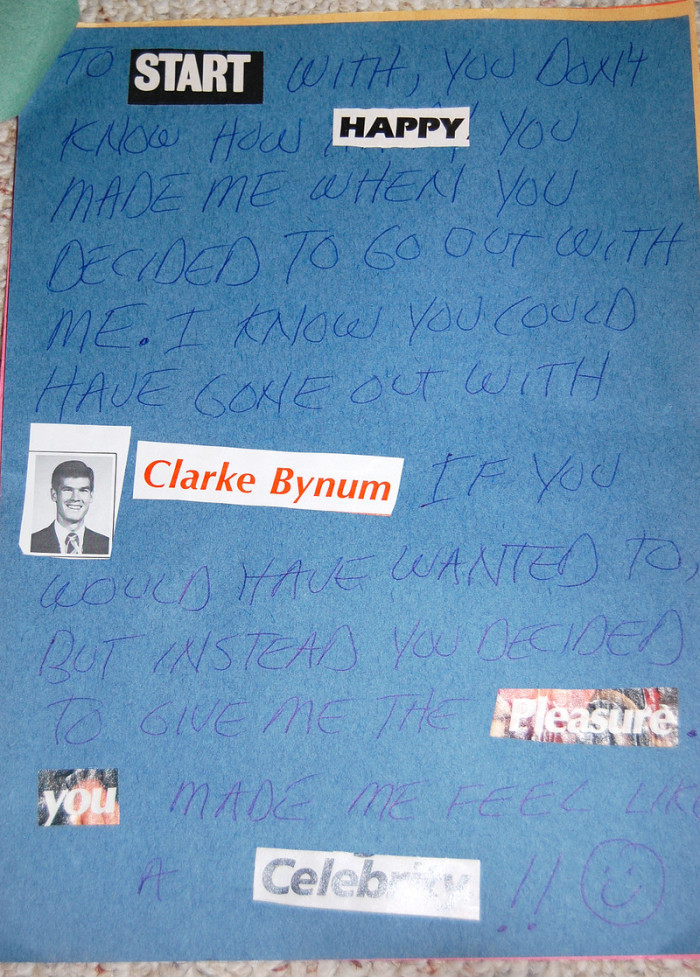 TO START WITH, YOU DON'T
KNOW HOW HAPPY YOU
MADE ME WHEN YOU
DECIDED TO GO OUT WITH
ME. I KNOW YOU COULD
HAVE GONE OUT WITH
Clarke Bynum IF YOU
WOULD HAVE WANTED TO,
BUT INSTEAD YOU DECIDED
TO GIVE ME THE Pleasure.
you MADE ME FEEL LIK
A Celebrity!!